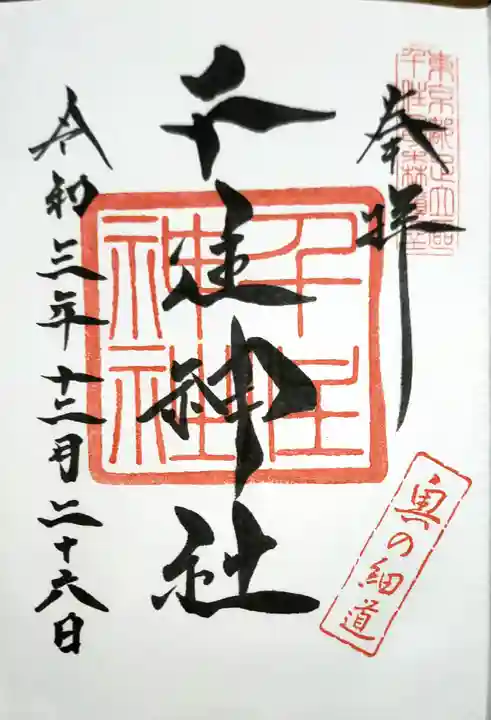 奉拝
千住神社
令和三年十二月二十六日
千住
神社
奥の細道
東京都足立区